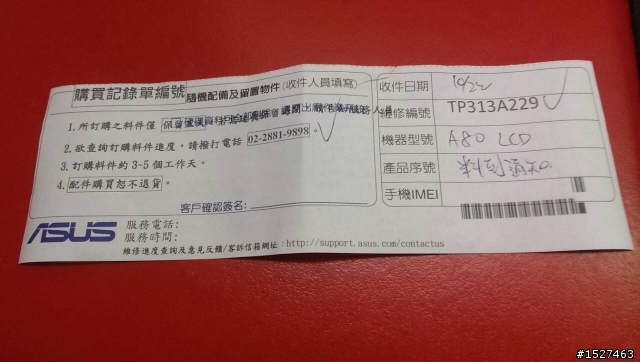 購買記錄單編號
隨機配備及留置物件(收件人員填寫)
1. 所訂購之料件僅 保留
2. 欲查詢訂購料件進度，請撥打電話 02-2881-9898。
3. 訂購料件約 3~5 個工作天。
4. 配件購買恕不退貨。
客戶確認簽名:
收件日期 10/22
維修編號 TP313A229
機器型號 A80 LCD
產品序號 料到通知
手機IMEI
ASUS
服務電話:
服務時間:
維修進度查詢及意見反饋/客訴信箱網址:http://support.asus.com/contactus
#1527463